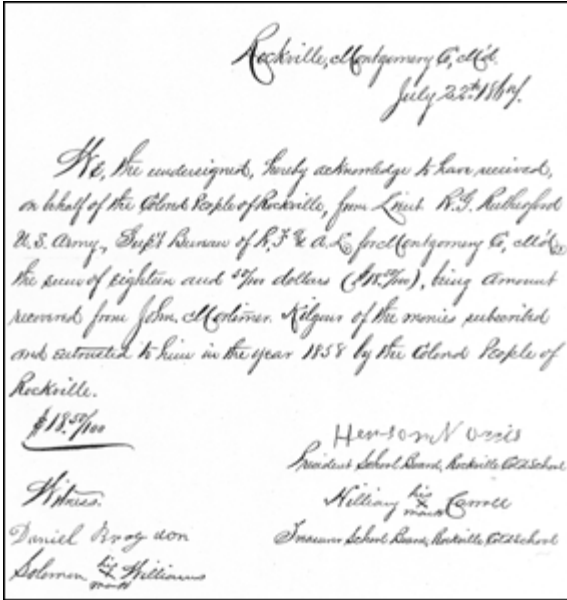 Rockville, Montgomery Co, Md.
July 22nd 1867.
We, the undersigned, hereby acknowledge to have received,
on behalf of the Colored People of Rockville, from Lieut R.G. Rutherford
U.S. Army, Sup't Bureau of R. F & A. L. for Montgomery Co, Md.,
the sum of eighteen and 50/100 dollars ($18.50/100), being amount
recovered from John Mortimer Kilgour of the monies subscribed
and entrusted to him in the year 1858 by the Colored People of
Rockville.
$18.50/100
Henson Norris
President School Board, Rockville Cold School
Witness.
Hilliary his x mark Carroll
Daniel Brogdon
Treasurer School Board, Rockville Cold School
Solomon his x mark Williams